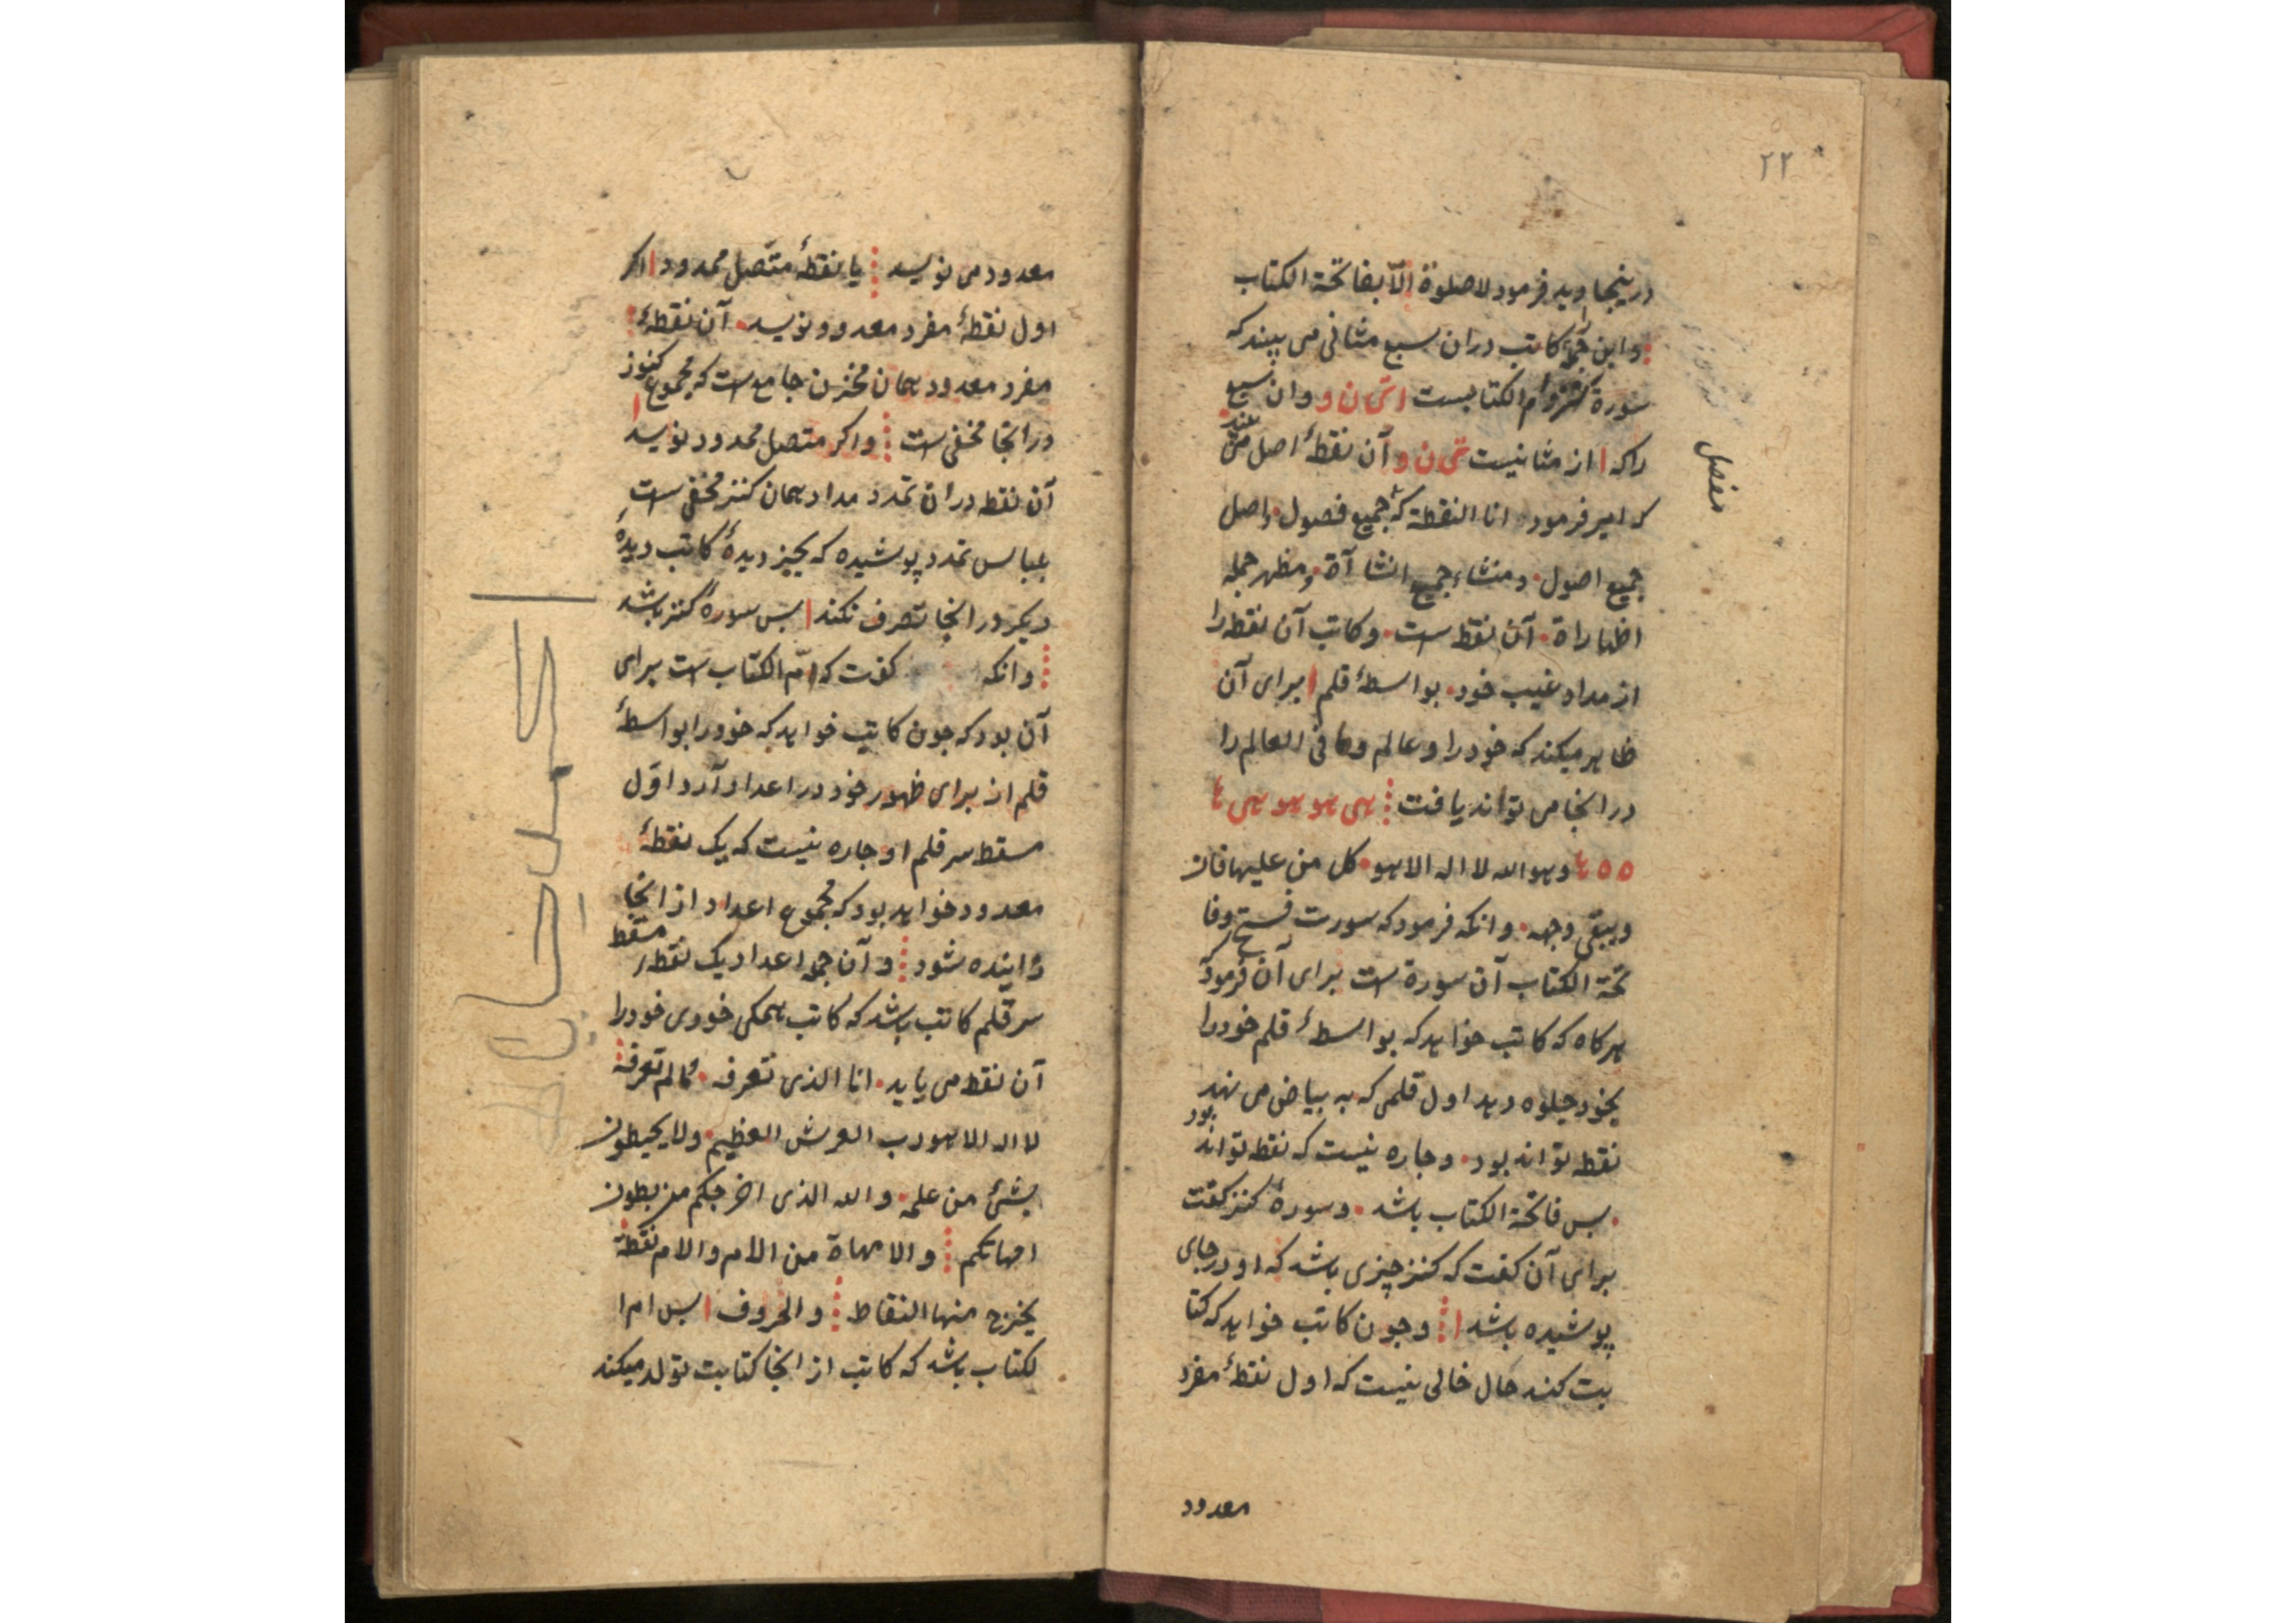 ۲۲
درینجا وید فرمود لا صلوة الّا بفاتحة الکتاب
و این کاتب دران سبع مثانی می بیند که
سورة کنز و ام الکتابست ا ن و وان سبع
راکه ا از مثانیست ن و آن نقطهٔ اصل من عند
که امیر فرمود انا النقطة که جمیع فصول و اصل
مفصل
جمیع اصول و منشاء جمیع انشاآة و مظهر جمله
اظهاراة آن نقطه است و کاتب آن نقطه را
از مداد غیب خود بواسطهٔ قلم ا برای آن
ظاهر میکند که خود را و عالم و ما فی العالم را
در انجا می تواند یافت هی هو هو هی ها
ه ه ها وهو الله لا اله الا هو کل من علیها فان
ویبقی وجهه و انکه فرمود که سورت فتح وفا
تحة الکتاب آن سورة است برای آن فرمود
هرکاه که کاتب خواهد که بواسطهٔ قلم خود را
بخود جلوه دهد اول قلمی که به بیاض می نهد
نقطه تواند بود و جاره نیست که نقطه تواند بود
بس فاتحة الکتاب باشد و سورهٔ کنز کفت
برای آن کفت که کنز چیزی باشد که او در جای
پوشیده باشد ا و جون کاتب خواهد که کتا
بت کند حال خالی نیست که اول نقطهٔ مفرد
معدود
معدود می نویسد یا نقطهٔ متّصل ممدود ا اکر
اول نقطهٔ مفرد معدود نویسد آن نقطهٔ
مفرد معدود همان مخزن جامع است که مجموع کنوز
در انجا مخفی است و اکر متصل ممدود نویسد
آن نقطه دران تمدد مداد همان کنز مخفی است
بلباس تمدد پوشیده که بجیز دیدهٔ کاتب دیدهٔ
دیکر در انجا تصرف نکند ا بس سورهٔ کنز باشد
و انکه کفت که امّ الکتاب است برای
آن بود که جون کاتب خواهد که خود را بواسطهٔ
قلم از برای ظهور خود در اعداد آرد اوّل
مسقط سر قلم او جاره نیست که یک نقطهٔ
معدود خواهد بود که مجموع اعداد از انجا
زاینده شود و آن جمله اعداد یک نقطه مسقط
سر قلم کاتب باشد که کاتب همکی خودی خود را
آن نقطه می یابد انا الذی تعرفه مما لم تعرفه
لا اله الا هو رب العرش العظیم ولا یحیطون
بشئ من علمه و الله الذی اخرجکم من بطون
امهاتکم و الامهاة من الام و الام نقطة
یخرج منها النقاط و الحروف ا بس ام ا
لکتاب باشد که کاتب از انجا کتابت تولد میکند